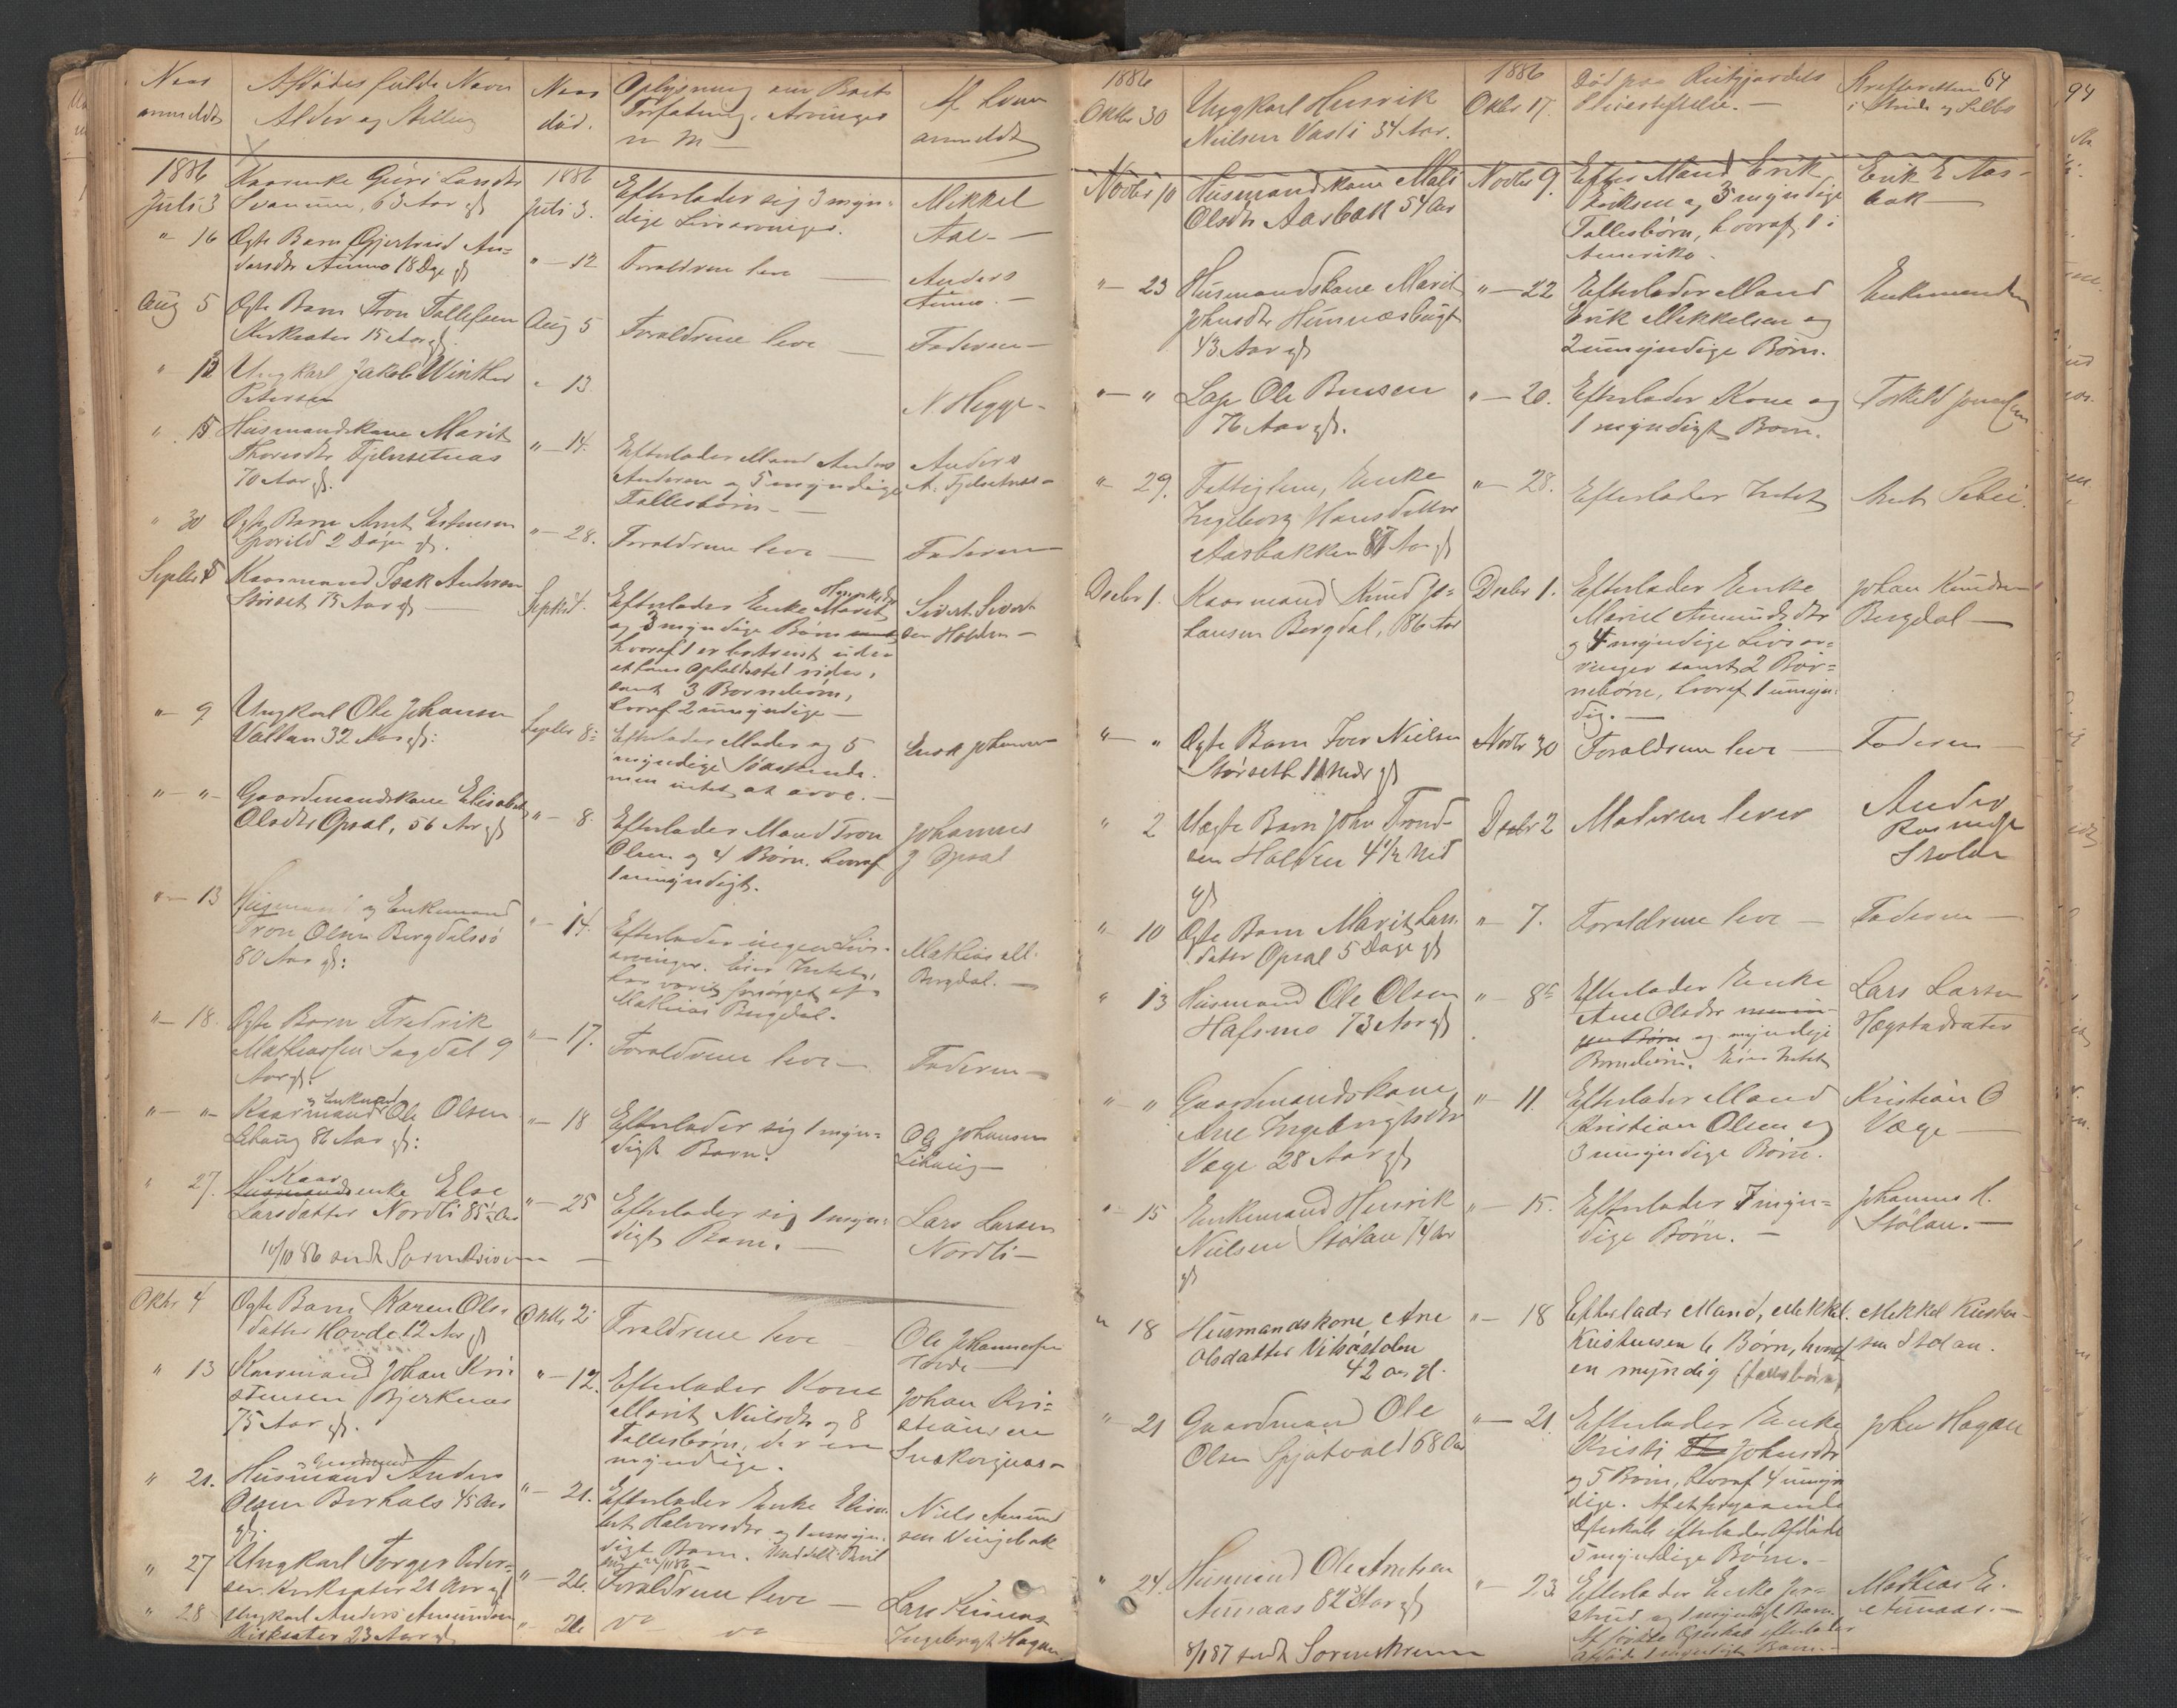 Naar
anmeldt
Afdødes fulde Navn
Alder og Stilling
Naar
død.
Oplysning om Boets
Forfatning, Arvinger
m m
Af hvem
anmeldt
1886
Juli 3
Kaarenke Guri Larsdtr
Svanum, 63 Aar gl
1886
Juli 3.
Efterlader sig 3 myn-
dige Livsarvinger.
Mikkel
Aae -
" 16
Ægte Barn Gjertrud An-
dersdtr Aunmo 18 Dge gl
" - 12
Forældrene leve
Anders
Aunmo. -
Aug 5
Ægte Barn Tron Tollefsen
Kirksæter 15 Aar gl.
Aug 5
Forældrene leve
Faderen -
" 13
Ungkarl Jakob Winther
Petersen
" 13
N. Hegge -
" 15
Husmandskone Marit
Thoresdtr Fjelnsetnæs
70 Aar gl.
" - 14.
Efterlader Mand Anders
Andersen og 5 myndige
Fællesbørn -
Anders
A. Fjelnsetnæs -
" 30
Ægte Barn Arnt Estensen
Sporild 2 Dage gl.
" - 28.
Forældrene leve
Faderen
Septbr 5
Kaarmand Isak Andersen
Størset 75 Aar gl
Septbr 4.
Efterlader Enke Marit
og 3 myndige Børn
hvoraf 1 er bortreist uden
at hans Opholdssted vides,
samt 3 Børnebørn,
hvoraf 2 umyndige -
Sivert Sivert-
sen Holden -
" - 9
Ungkarl Ole Johansen
Vallan 32 Aar gl:
Septbr 8:
Efterlader Moder og 5
myndige Søskende.
men intet at arve. -
Enok Johansen
" - "
Gaardmandskone Elisabet
Olsdtr Opsal, 56 Aar gl
" - 8.
Efterlader Mand Tron
Olsen og 4 Børn, hvoraf
1 umyndigt.
Johannes
J Opsal
" - 13
Husmand og Enkemand
Tron Olsen Bergdalssø
80 Aar gl:
" - 14.
Efterlader ingen Livs-
arvinger. Eier Intet,
har været forsørget af
Mathias Bergdal.
Mathias M.
Bergdal. -
" - 18.
Ægte Barn Fredrik
Mathiassen Sagdal 9
Aar gl.
" - 17.
Forældrene leve -
Faderen -
" - "
og Enkmand
Kaarmand Ole Olsen
Lihaug 86 Aar gl:
" - 18
Efterlader sig 1 myn-
digt Barn.
Ole Johansen
Lihaug -
" 27.
Kaar
Husmandsenke Else
Larsdatter Nordli 85 ½ Aar
" - 25
Efterlader sig 1 myn-
digt Barn. -
Lars Larsen
Nordli -
10/10 86 sendt Sorenskriveren
Oktbr 4
Ægte Barn Karen Ols-
datter Hovde 12 Aar gl
Oktbr 2.
Forældrene leve
Ole Johannessen
Hovde -
" 13
Kaarmand Johan Kri-
stensen Bjerknæs
75 Aar gl.
" - 12.
Efterlader Kone
Marit Nilsdtr og 8
Fællesbørn, der ere
myndige.
Johan Kri-
stiansen
" 21.
Gaardmand
Husmand Anders
Olsen Berhals 45 Aar
gl.
" - 21.
Efterlader Enke Elisa-
bet Halvorsdtr og 1 umyn-
digt Barn.
Niels Amund
sen Vingebak
" 27
Ungkarl Torger Peder-
sen Kirksæter 21 Aar gl
" - 26.
Forældrene leve -
Lars
" 28
Ungkarl Anders Amundsen
Kirksæter 23 Aar gl
" 26
Ingebrigt Hagen
64
1886
Oktbr 30
Ungkarl Henrik
Nielsen Vasli 34 Aar.
1886
Oktbr 17.
Død paa Reitgjærdets
Pleiestiftelse. -
Skifteretten
i Strinde og Selbo
Novbr 10
Husmandskone Mali
Olsdtr Aasbak 54 Aar
Novbr 9.
Efter Mand Erik
Eriksen og 3 myndige
Fællesbørn, hvoraf 1 i
Amerika.
Erik E Aas-
bak -
" - 23
Husmandskone Marit
Johnsdtr Hennæsbugt
43 Aar gl
" - 22
Efterlader Mand
Erik Mikkelsen og
2 umyndige Børn.
Enkemanden
" - "
Lap Ole Bensen
76 Aar gl.
" - 20.
Efterlader Kone og
1 myndigt Barn.
" 29.
Fattiglem, Enke
Ingeborg Hansdatter
Aasbakken 87 Aar gl
" - 28.
Efterlader Intet
Decbr 1.
Kaarmand Knud Jo-
hansen Bergdal, 86 Aar
Decbr 1.
Efterlader Enke
Marit Amundsdtr
og 4 myndige Livsar-
vinger samt 2 Bør-
nebørn, hvoraf 1 umyn-
dig. -
Johan Knudsen
Bergdal -
" - "
Ægte Barn Iver Nielsen
Størseth 11 Mdr gl
Novbr 30
Forældrene leve -
Faderen -
" 2
Uægte Barn John Trond-
sen Holden 4½ Md
gl
Decbr 2
Moderen lever
" 10
Ægte Barn Marit Lars-
datter Opsal 5 Dage gl
" - 7.
Forældrene leve -
Faderen -
" 13
Husmand Ole Olsen
Hafsmo 73 Aar gl
" - 8
Efterlader Enke
Ane Olsdtr
og myndige
Børnebørn. Eier Intet
Lars Larsen
Hægstadsæter
" - "
Gaardmandskone
Ane Ingebrigtsdtr
Vage 28 Aar gl
" - 11.
Efterlader Mand
Kristian Olsen og
3 umyndige Børn.
Kristian O
Vage -
" 15
Enkemand Henrik
Nielsen Stølan 74 Aar
gl
" - 15.
Efterlader 7 myn-
dige Børn. -
Johannes H.
Stølan. -
" 18
Husmandskone Ane
Olsdatter Vitsøstølen
42 aar gl.
" - 18
Efterladr Mand, Mekkel
Kristensen 6 Børn, hvoraf
en myndig (fællesbørn)
Mekkel Kristen-
sen Stølan.
" 21
Gaardmand Ole
Olsen Gjøtvold 68 Aar
" - 21.
Efterlader Enke
Kristi Johnsdtr
og 5 Børn, hvoraf 4 umyn
dige. Af et foregaaende
Egteskab efterlader Afdøde
5 myndige Børn. -
John Hagen
" 24.
Husmand Ole Arntsen
Aunaas 82 ¾ Aar gl
" - 23
Efterlader Enke Jor-
strud og 1 myndigt Barn.
Af første Egteskab efterlader
Afdøde 1 myndigt Barn. -
Mathias E.
Aunaas. -
8/1 87 sendt Sorenskriveren
94